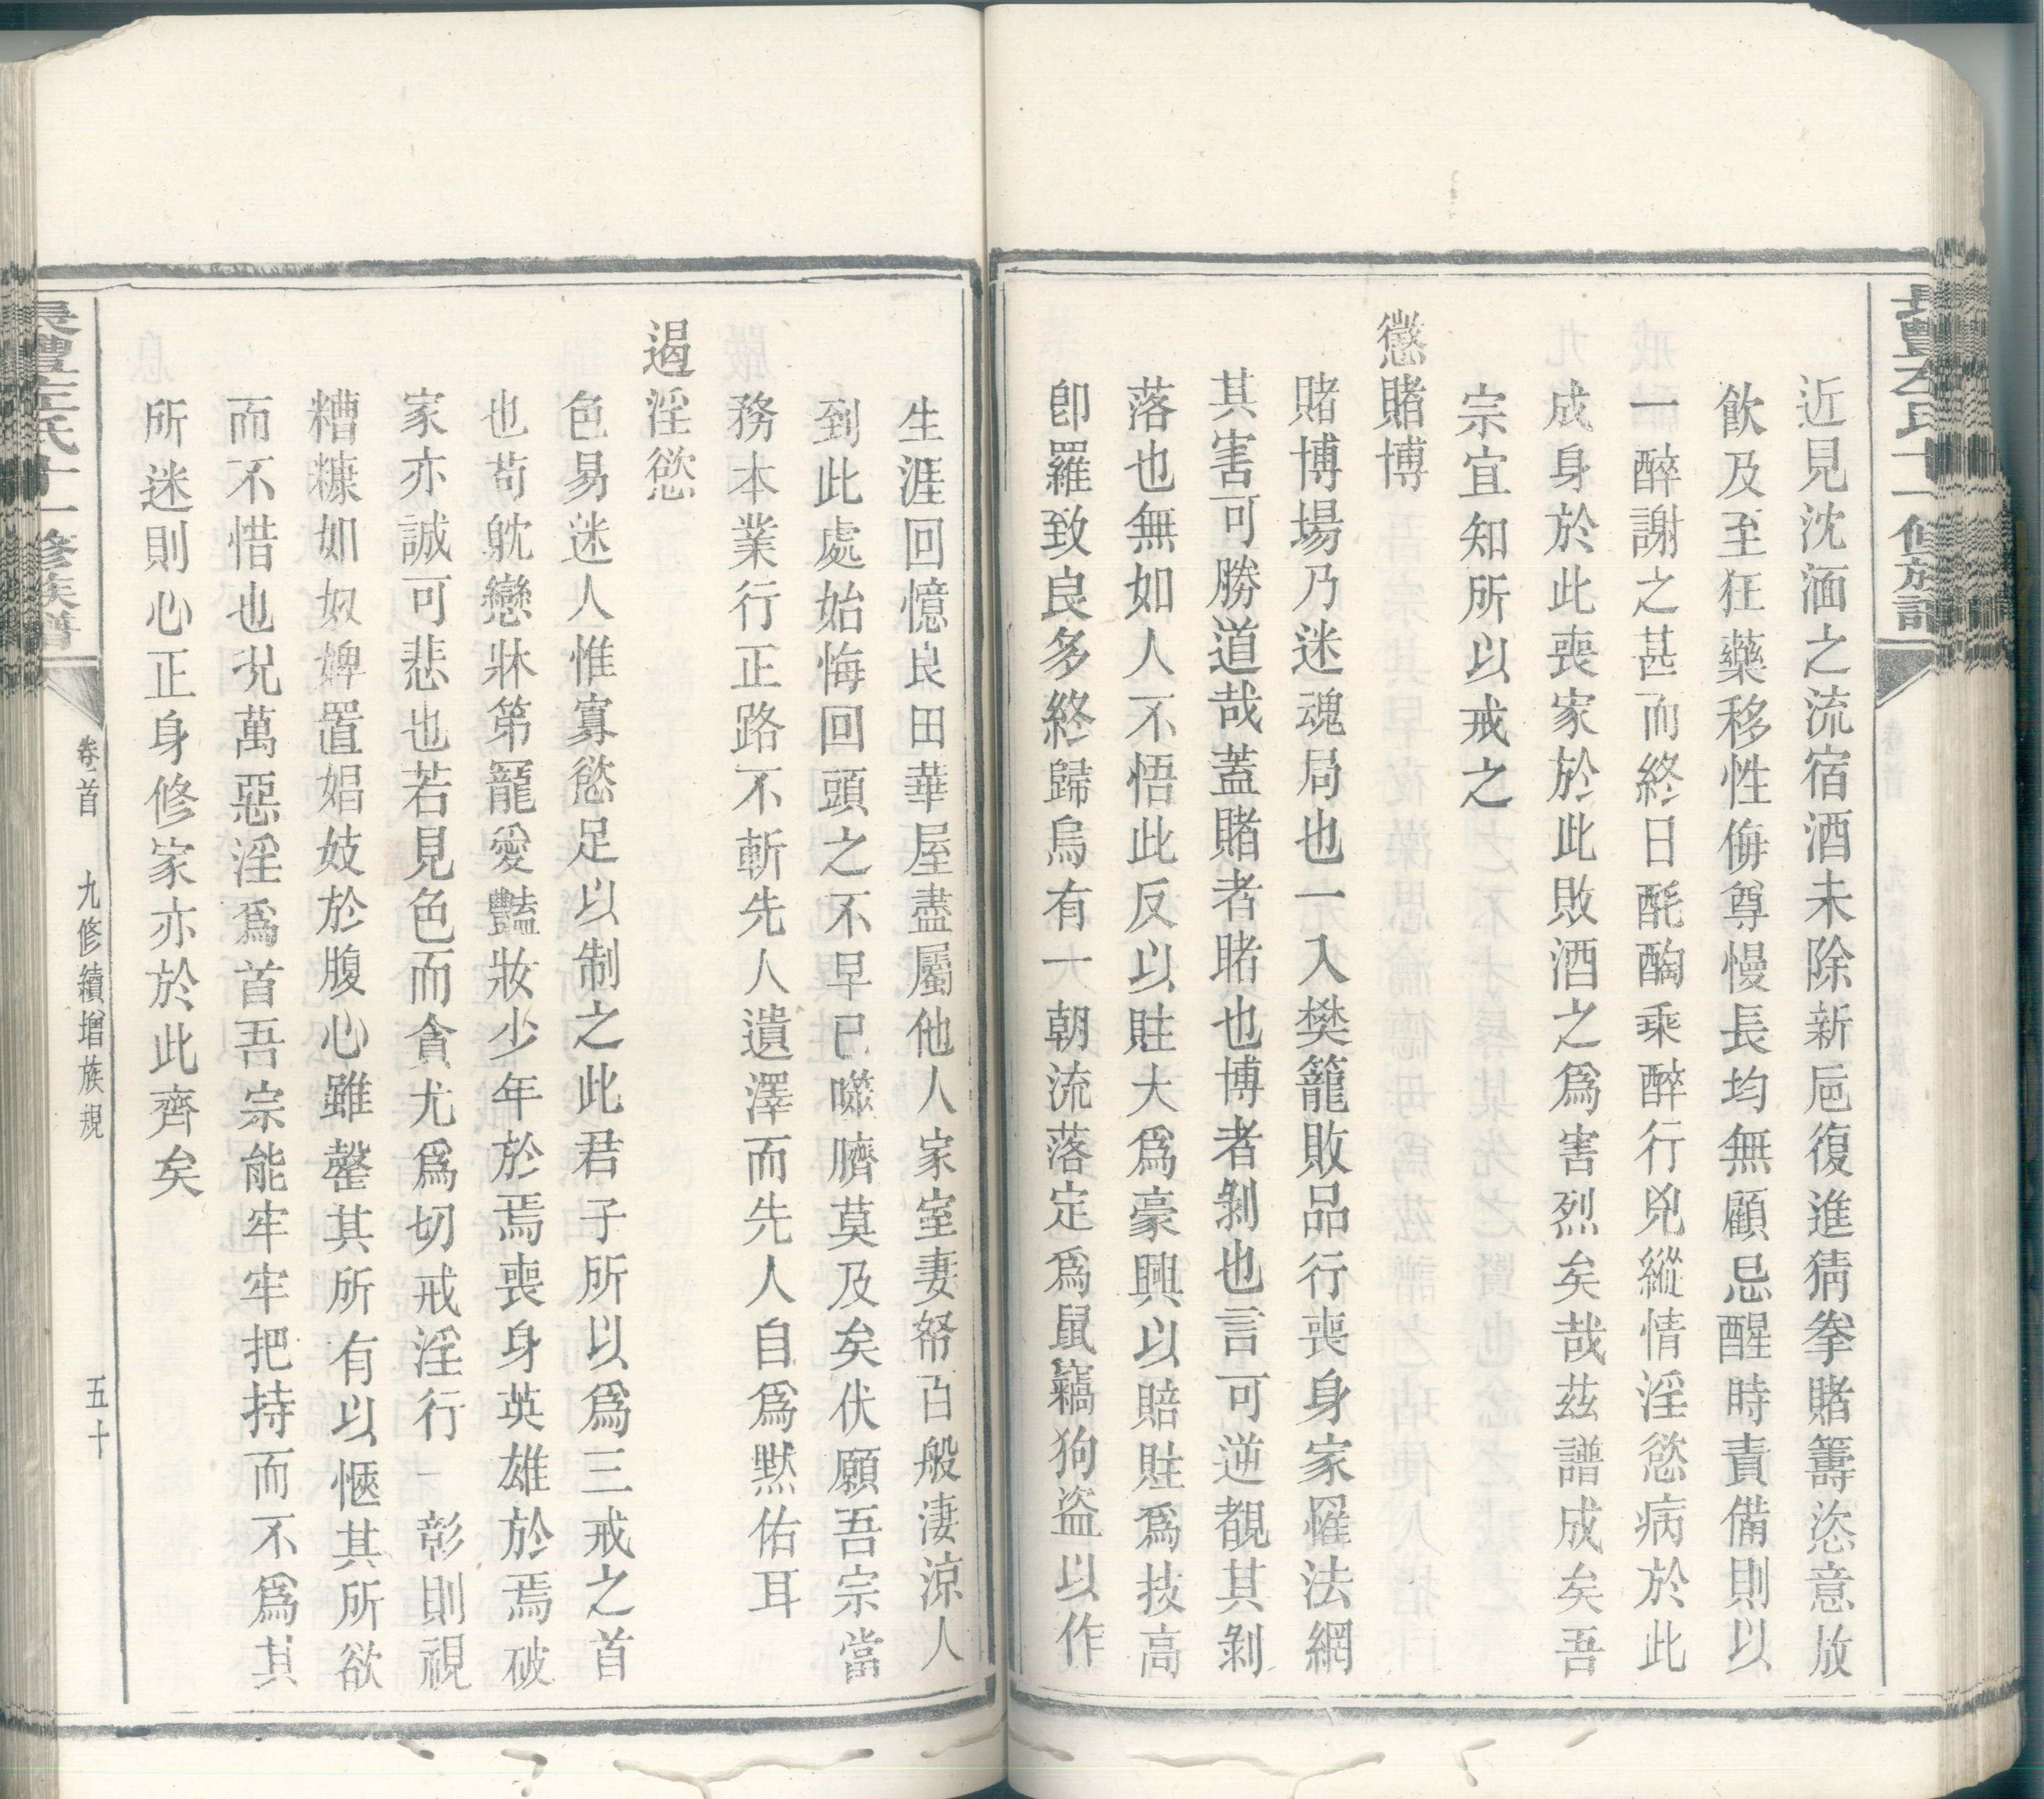 近見沈湎之流宿酒未除新巵復進猜拳賭籌恣意放
飲及至狂藥移性侮尊慢長均無顧忌醒時責備則以
一醉謝之甚而終日酕醄乘醉行兇縱情淫慾病於此
成身於此喪家於此敗酒之爲害烈矣哉茲譜成矣吾
宗宜知所以戒之
懲賭博
賭博場乃迷魂局也一入樊籠敗品行喪身家罹法網
其害可勝道哉蓋賭者賭也博者剝也言可逆覩其剝
落也無如人不悟此反以賍大爲豪興以賠賍爲技高
卽羅致良多終歸烏有一朝流落定爲鼠竊狗盜以作
生涯回憶良田華屋盡屬他人家室妻帑百般淒涼人
到此處始悔回頭之不早已噬臍莫及矣伏願吾宗當
務本業行正路不斬先人遺澤而先人自爲默佑耳
遏淫慾
色易迷人惟寡慾足以制之此君子所以爲三戒之首
也苟躭戀牀第寵愛豔妝少年於焉喪身英雄於焉破
家亦誠可悲也若見色而貪尤爲切戒淫行一彰則視
糟糠如奴婢置娼妓於腹心雖罄其所有以愜其所欲
而不惜也況萬惡淫爲首吾宗能牢牢把持而不爲其
所迷則心正身修家亦於此齊矣
卷首 九修續增族規 五十